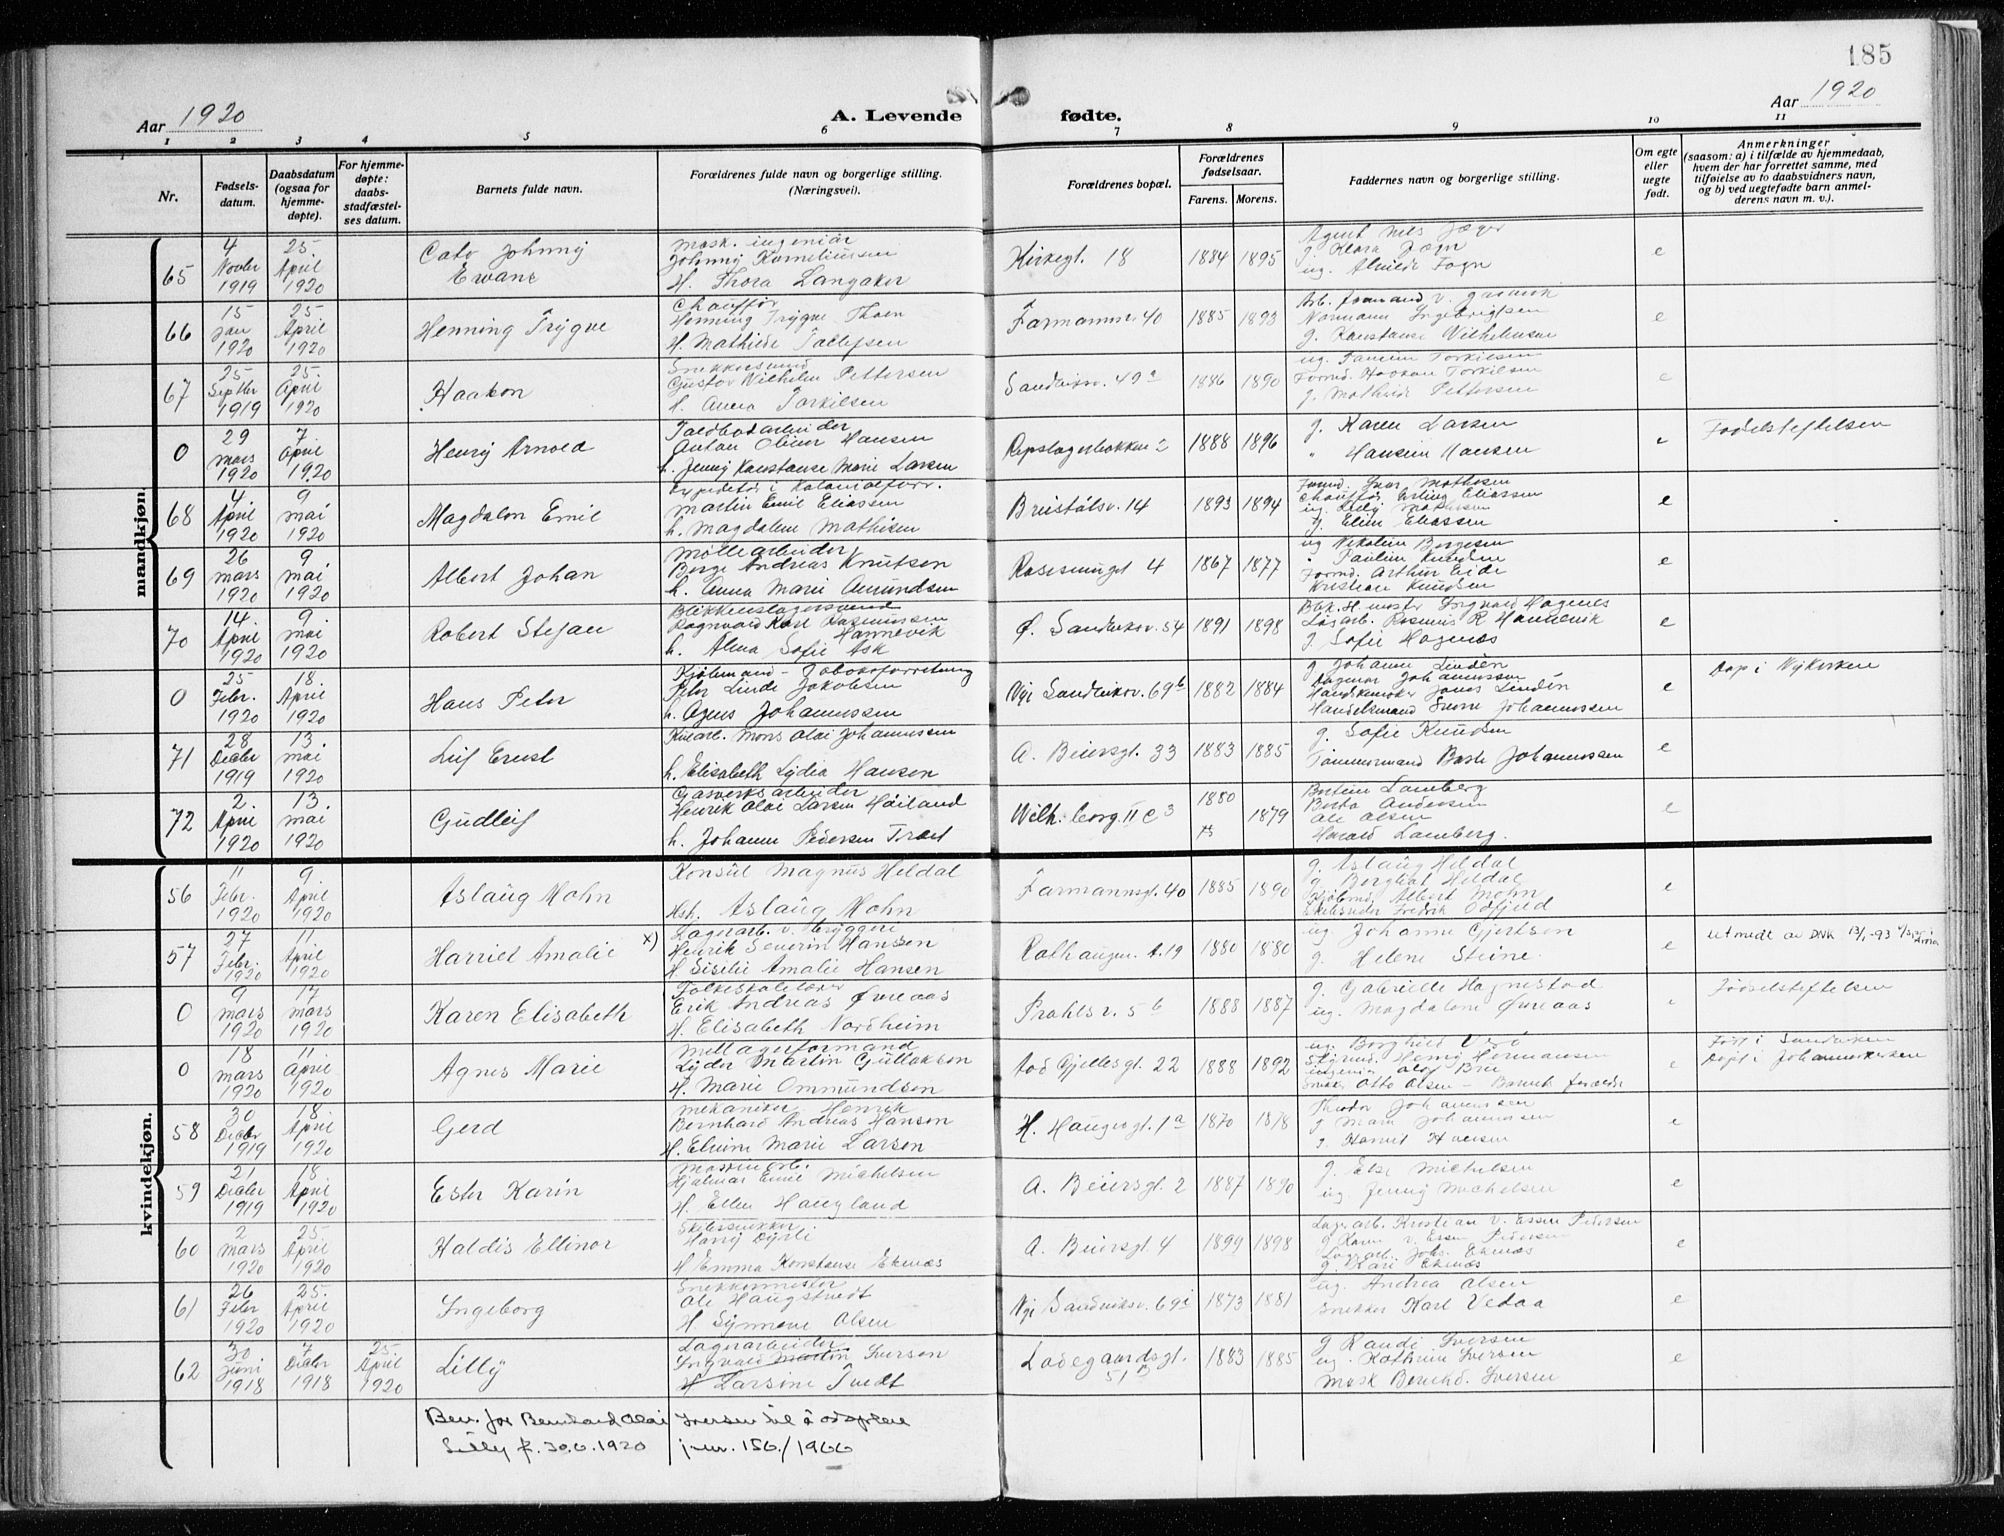 185
Aar 1920
A. Levende fødte.
Aar 1920
1 2 3 4 5 6 7 8 9 10 11
Nr.
Fødsels-
datum.
Daabsdatum
(ogsaa for
hjemme-
døpte).
For hjemme-
døpte:
daabs-
stadfæstel-
ses datum.
Barnets fulde navn.
Forældrenes fulde navn og borgerlige stilling.
(Næringsvei).
Forældrenes bopæl.
Forældrenes
fødselsaar.
Farens. Morens.
Faddernes navn og borgerlige stilling.
Om egte
eller
uegte
født.
Anmerkninger
(saasom: a) i tilfælde av hjemmedaab,
hvem der har forrettet samme, med
tilføielse av to daabsvidners navn,
og b) ved uegtefødte barn anmel-
derens navn m. v.).
mandkjøn.
65
4 Novber 1919
25 April 1920
Cato Johnny
Ewane
Mask. ingeniør
Johnny Korneliussen
H. Thora Langaker
Kirkegt. 18
1884 1895
Agent Nils Jæger
g. Klara
ug. Alvilde
e
66
15 Jan 1920
25. April 1920
Henning Trygve
Chauffør
Henning Trygve Thoen
H. Mathilde Tollefsen
40
1885 1893
Normann Ingebrigtsen
g. Konstanse Wilhelmsen
e
67
25 Septbr 1919
25. April 1920
Haakon
Snekkersvend
Gustav Wilhelm Pettersen
h. Anna Torkilsen
Sandviksv. 49a
1886 1890
Torkilsen
Formd. Haakon Torkilsen
g. Mathilde Pettersen
e
0
29 Mars 1920
7 April 1920
Henry Arnold
Anton Oliver Hansen
h. Jenny Konstanse Marie Larsen
Repslagerbakken 2
1888 1896
g. Karen Larsen
" Hansine Hansen
e
Fødselstiftelsen
68
4. April 1920
9 Mai 1920
Magdalon Emil
Expeditør i Kolonialforr.
Martin Emil Eliassen
h. Magdalene Mathisen
Breistølsv. 14
1893 1894
Chauffør Erling Eliassen
g. Eline Eliassen
e
69
26 Mars 1920
9 Mai 1920
Albert Johan
Møllearbeider
Børge Andreas Knutsen
h. Anna Marie Amundsen
Rosesmuget 4
1867 1877
ug Nikoline Børgesen
" Pauline Knudsen
Formd. Arthur Eide
Kristian Knudsen
e
70
14. April 1920
9. Mai 1920
Robert Stefan
Blikkenslagersvend
Ragnvald Karl Rasmussen
Hannevik
h. Alma Sofie Ask
Ø. Sandviksv. 54
1891 1898
Ingvald Hagenes
Løsarb. Rasmus R Hannevik
g. Sofie Hagenæs
e
0
25 Febr. 1920
18. April 1920
Hans Peter
Kjøbmand - Tobaksforretning
Peter Linde Jakobsen
h. Agnes Johannessen
Nye Sandviksv. 69b
1882 1884
g Johanne Lindén
Ragnar Johannessen
Handskemaker Jonas Lindén
Handelsmand Johannessen
e
Døp i Nykirken
71
28 Decbr 1919
13. Mai 1920
Leif Ernst
Mons Olai Johannessen
h. Elisabeth Lydia Hansen
A. Beiersgt. 33
1883 1885
g. Sofie Knudsen
Tømmermand Johannessen
e
72
2. April 1920
13. Mai 1920
Gudleif
Gasverksarbeider
Henrik Olai Larsen Høiland
h. Johanne Pedersen Træet
Wilh. borg II c 3
1880 1879
Lamberg
Berta Andersen
Ole Olsen
Harald Lamberg.
e
kvindekjøn.
56
11 Febr. 1920
9 April 1920
Aslaug Mohn
Konsul Magnus Heldal
Hst. Aslaug Mohn
Farmannsgt. 40
1885 1890
g. Aslaug Heldal
g Borghild Heldal
Kjøbmd. Albert Mohn
Skibsreder Fredrik Odfjeld
e
57
27 Febr. 1920
11 April 1920
Harriet Amalie x)
Lagerarb. v. bryggeri
Henrik Severin Hansen
H. Sisilie Amalie Hansen
Rothaugen A. 19
1880 1880
ug. Johanne Gjertsen
g. Helene Stene.
e
Utmeldt av DNK 13/1-93
0
9 Mars 1920
17 Mars 1920
Karen Elisabeth
Folkeskolelærer
Erik Andreas Øvreaas
H. Elisabeth Nordheim
Prahlsv. 5b
1888 1887
g. Gabrielle Hognestad
ug. Magdalene Øvreaas
e
Fødselstiftelsen
0
18 Mars 1920
11 April 1920
Agnes Marie
Lyder Martin Gullakson
H. Marie Ommundsen
Aad Gjellesgt 22
1888 1892
ug. Borghild
Henry Hermansen
Otto Olsen -
e
Født i Sandviken
Døpt i Johanneskirken
58
30 Decbr 1919
18 April 1920
Gerd
Mekaniker Henrik
Bernhard Andreas Hansen
H. Elvine Marie Larsen
H. Haugesgt. 1a
1870 1878
Theodor Johannessen
g Marie Johannessen
g. Harriet Hansen
e
59
21 Decbr 1919
18 April 1920
Ester Karin
Maskinarb.
Hjalmar Emil Michelsen
H. Ellen Haugland
A. Beiersgt. 2
1887 1890
g. Else Michelsen
ug. Jenny Michelsen
e
60
2 Mars 1920
25 April 1920
Haldis Ellinor
Skibssnekker
Harry Dyrli
H Emma Konstanse Ekenæs
A. Beiersgt. 4
1899 1898
Lagerarb. Kristian v. Essen Pedersen
g Karen v. Essen Pedersen
Lagerarb. Johs. Ekenæs
g. Kari Ekenæs
e
61
26 Febr 1920
25. April 1920
Ingeborg
Snekkermester
Ole Haugstvedt
H Synneve Olsen
Nye Sandviksv. 69i
1873 1881
ug. Andrea Olsen
Snekker Karl Vedaa
e
62
30 Juni 1918
7 Decbr 1918
25. April 1920
Lilly
Lagerarbeider
Ingvald Martin Iversen
H Larsine Tvedt
Ladegaardsgt.
51b
1883 1885
g Randi Iversen
ug. Kathrine Iversen
Mask Bernhd. Iversen
e
Bev. for Bernhard Olai Iversen til å adoptere
Lilly f. 30.6.1920 j.nr. 150/1966